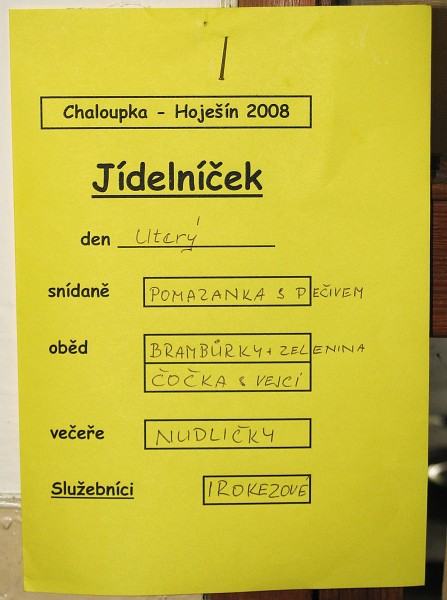 Chaloupka - Hoješín 2008
Jídelníček
den Uterý
snídaně POMAZANKA S PEČIVEM
oběd BRAMBŮRKY + ZELENINA
ČOČKA S VEJCI
večeře NUDLIČKY
Služebníci IROKEZOVÉ